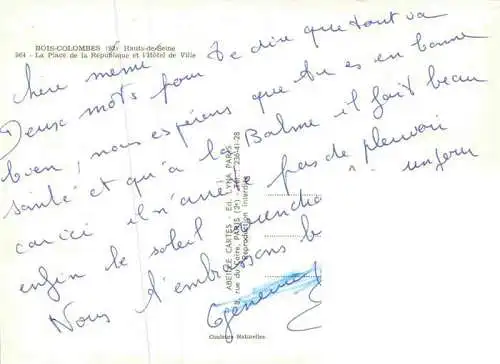 BOIS-COLOMBES (92) Hauts-de-Seine
964 - La Place de la République et l'Hôtel de Ville
chère mémé
Deux mots pour te dire que tout va
bien, nous espérons que tu es en bonne
santé et qu'à la Balme il fait beau
car ici il n'arrête pas de pleuvoir
enfin le soleil
Nous t'embrassons
ABEILLE CARTES - Ed. LYNA PARIS
8, rue du Caire, PARIS (2e) - Tél. 236-41-28
Reproduction interdite
Couleurs Naturelles